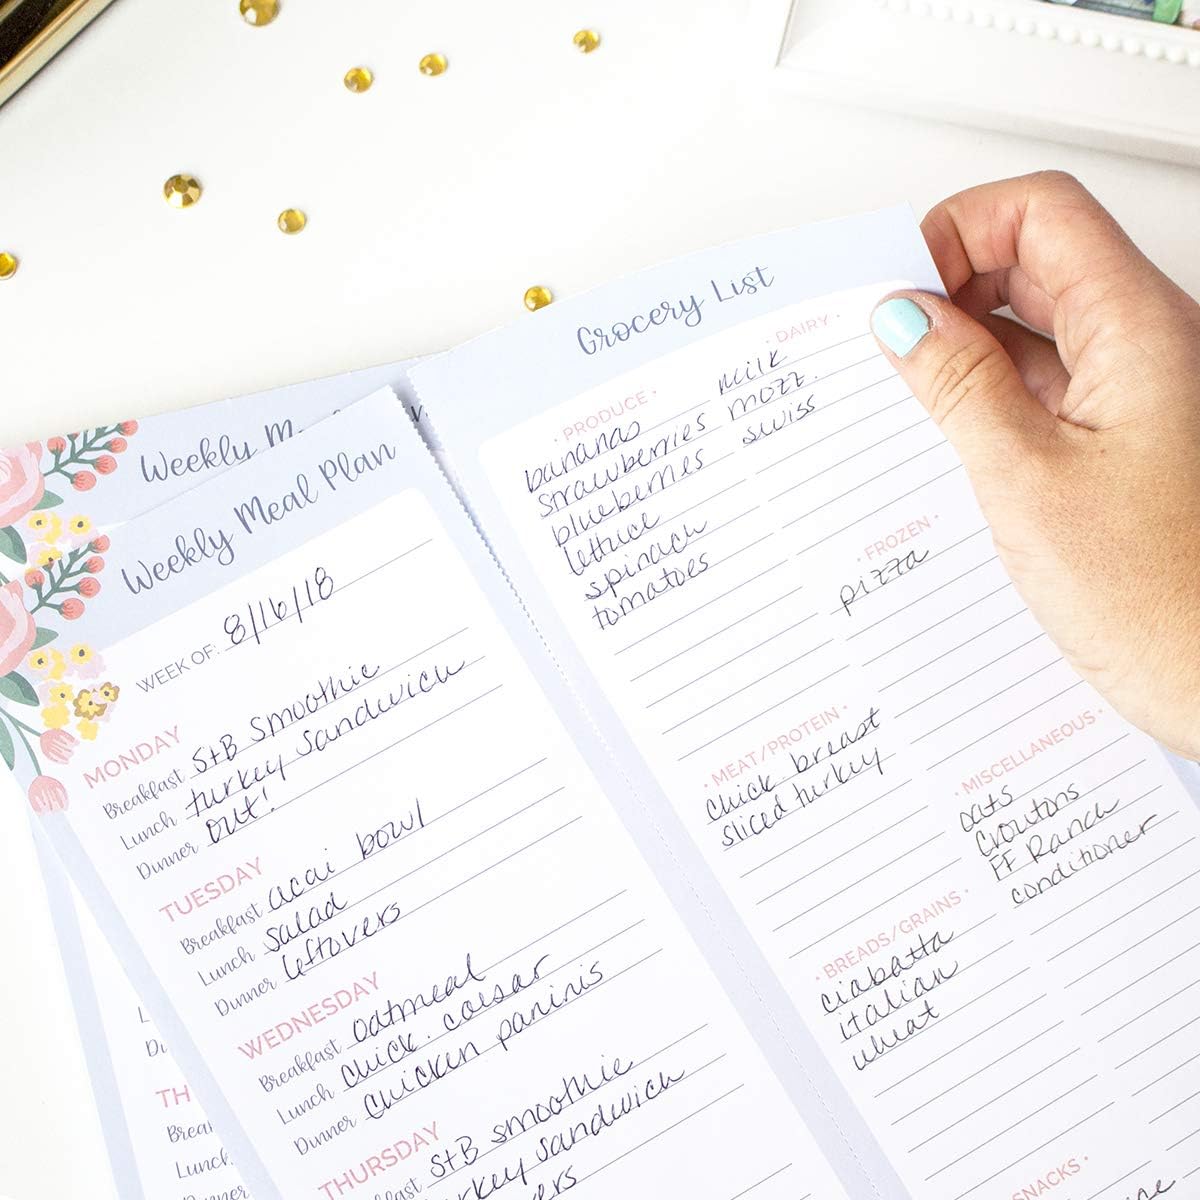 Weekly M
Weekly Meal Plan
WEEK OF: 8/16/18
MONDAY
Breakfast S+B smoothie
Lunch turkey sandwich
Dinner out!
TUESDAY
Breakfast acai bowl
Lunch salad
Dinner leftovers
WEDNESDAY
Breakfast oatmeal
Lunch chick. caesar
Dinner chicken paninis
THURSDAY
Breakfast S+B smoothie
turkey sandwich
vers
L
Di
TH
Break
Lunch
Dinner
Grocery List
· PRODUCE ·
bananas
strawberries
blueberries
lettuce
spinach
tomatoes
· DAIRY ·
milk
mozz.
swiss
· FROZEN ·
pizza
· MEAT/PROTEIN ·
chick breast
sliced turkey
· MISCELLANEOUS ·
oats
croutons
FF Ranch
conditioner
· BREADS/GRAINS ·
ciabatta
italian
wheat
SNACKS ·